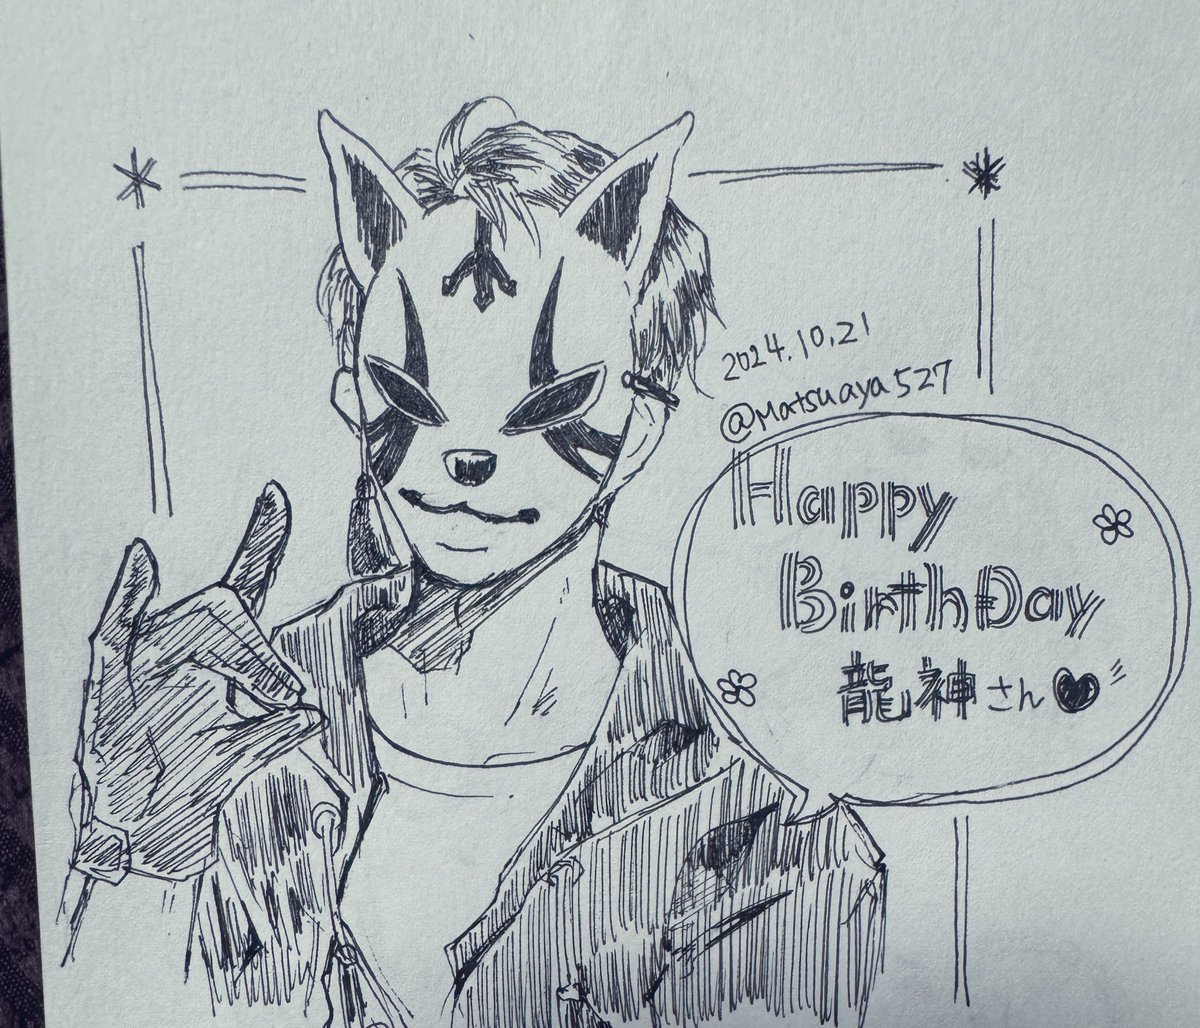 2024.10.21
@Matsuaya527
Happy
BirthDay
龍神さん